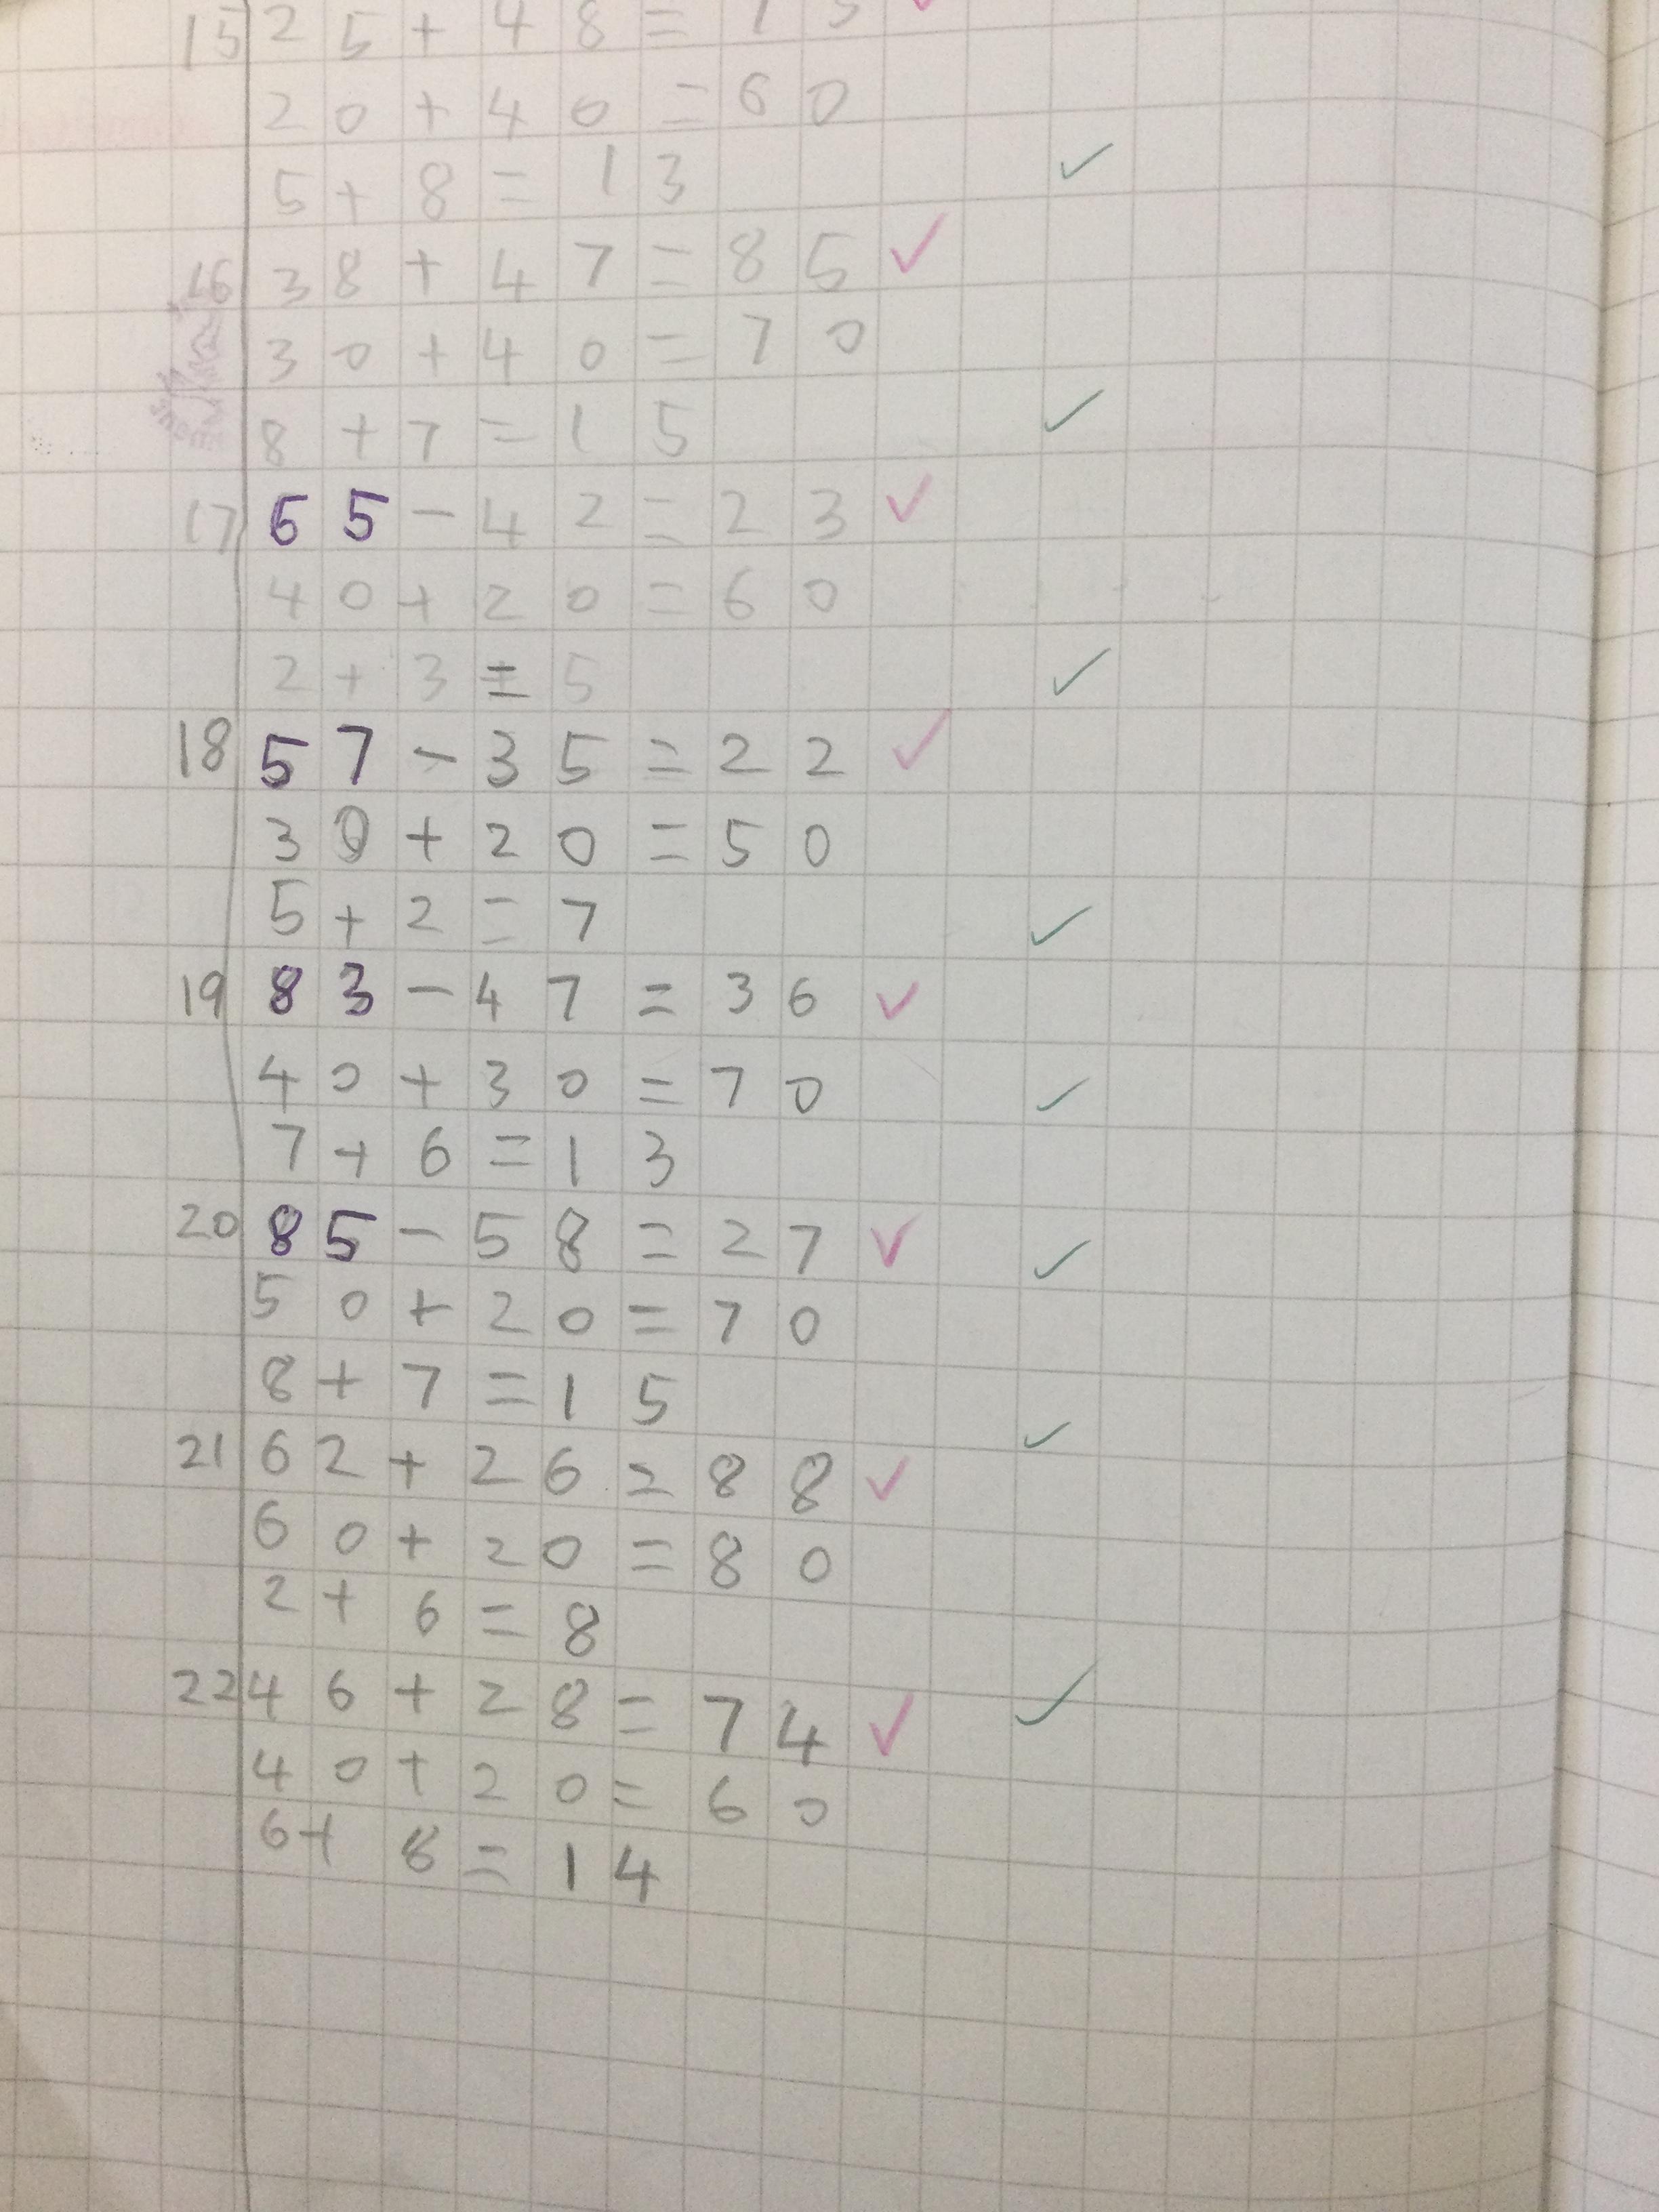 15 25 + 48 = 73
20 + 40 = 60
5 + 8 = 13
16 38 + 47 = 85
30 + 40 = 70
8 + 7 = 15
17 65 - 42 = 23
40 + 20 = 60
2 + 3 = 5
18 57 - 35 = 22
30 + 20 = 50
5 + 2 = 7
19 83 - 47 = 36
40 + 30 = 70
7 + 6 = 13
20 85 - 58 = 27
50 + 20 = 70
8 + 7 = 15
21 62 + 26 = 88
60 + 20 = 80
2 + 6 = 8
22 46 + 28 = 74
40 + 20 = 60
6 + 8 = 14